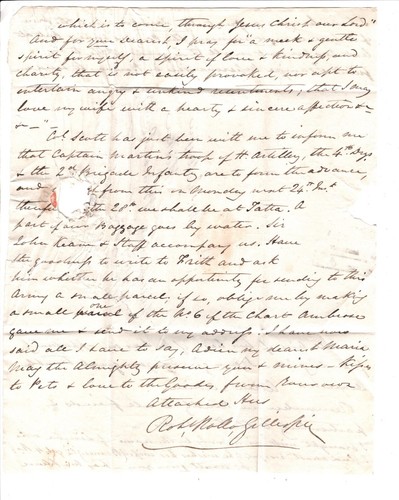 which is to come through Jesus Christ our Lord"
And for you dearest, I pray for "a meek & gentle
spirit for myself, a spirit of love & kindness, and
charity, that is not easily provoked, nor apt to
entertain angry & unkind resentments, that I may
love my wife with a hearty & sincere affection &c
&c—"
Col Scott has just been with me to inform me
that Captain Martin's troop of H Artillery, the 4th Dgs
& the 2nd Brigade Infantry are to form the advance,
and from this on Monday next 24th Inst
the 28th we shall be at Tatta. A
part of our Baggage goes by water. Sir
John Keane & Staff accompany us. Have
the goodness to write to Frith and ask
him whether he has an opportunity for sending to this
Army a small parcel, if so, oblige me by making
a small one of the No 6 of the Chart Ambrose
gave me & send it to my address. I have now
said all I have to say, Adieu my dearest Maria
May the Almighty preserve you & mine - Kisses
to Pets & love to the Goodes, from Your own
Attached Hus
Robt Rollo Gillespie